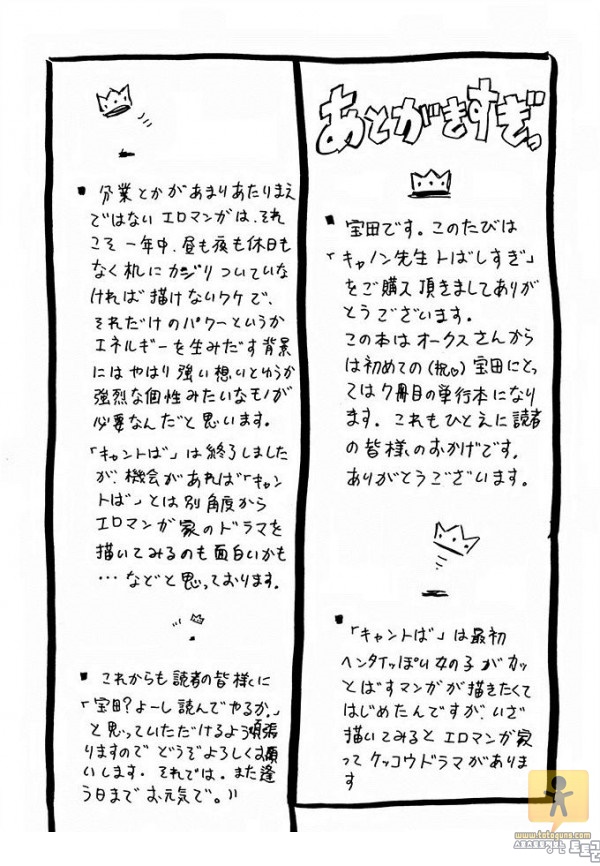 あとがきすぎっ
■ 宝田です。このたびは
「キャノン先生トばしすぎ」
をご購入頂きましてありが
とうございます。
この本はオークスさんから
は初めての(祝♡)宝田にとっ
ては7冊目の単行本になり
ます。これもひとえに読者
の皆様のおかげです。
ありがとうございます。
■ 「キャントば」は最初
ヘンタイっぽい女の子がカッ
とばすマンガが描きたくて
はじめたんですが、いざ
描いてみるとエロマンガ家
ってケッコウドラマがありま
す
■ 分業とかがあまりあたりまえ
ではないエロマンガは、それ
こそ一年中、昼も夜も休日も
なく机にカジりついていな
ければ描けないワケで、
それだけのパワーというか
エネルギーを生みだす背景
にはやはり強い想いとゆうか
強烈な個性みたいなモノが
必要なんだと思います。
「キャントば」は終了しました
が、機会があれば「キャン
トば」とは別角度から
エロマンガ家のドラマを
描いてみるのも面白いかも
…などと思っております。
■ これからも読者の皆様に
「宝田?よーし読んでやるか。」
と思っていただけるよう頑張
りますのでどうぞよろしくお願
いします。それでは。また逢
う日までお元気で。
www.totoguns.com